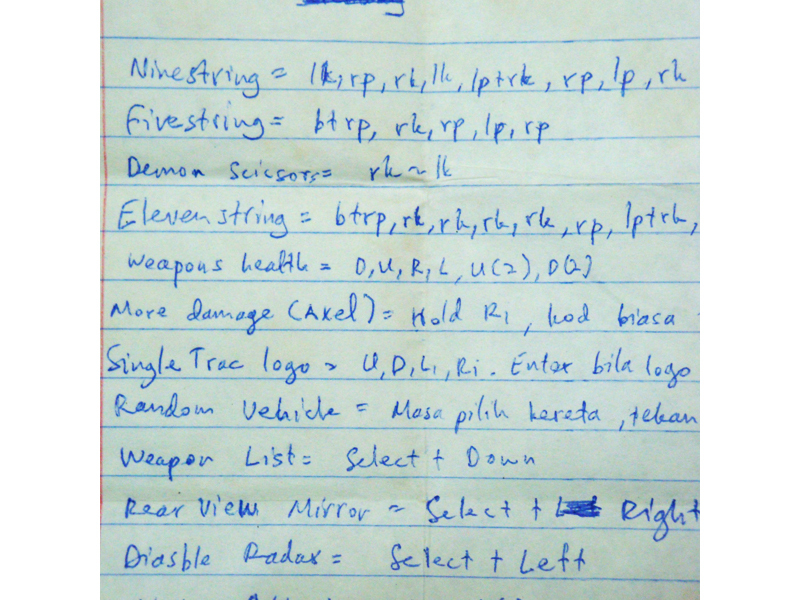 Ninestring = lk, rp, rk, lk, lp+rk, rp, lp, rk
Fivestring = b+rp, rk, rp, lp, rp
Demon Scicsors= rk ~ lk
Elevenstring = b+rp, rk, rk, rk, rk, rp, lp+rk,
Weapons health = D, U, R, L, U(2), D(2)
More damage (Axel) = Hold R1, kod biasa
Single Trac logo = U, D, L1, R1. Enter bila logo
Random Vehicle = Masa pilih kereta, tekan
Weapon List = Select + Down
Rear View Mirror = Select + Right
Diasble Radar = Select + Left